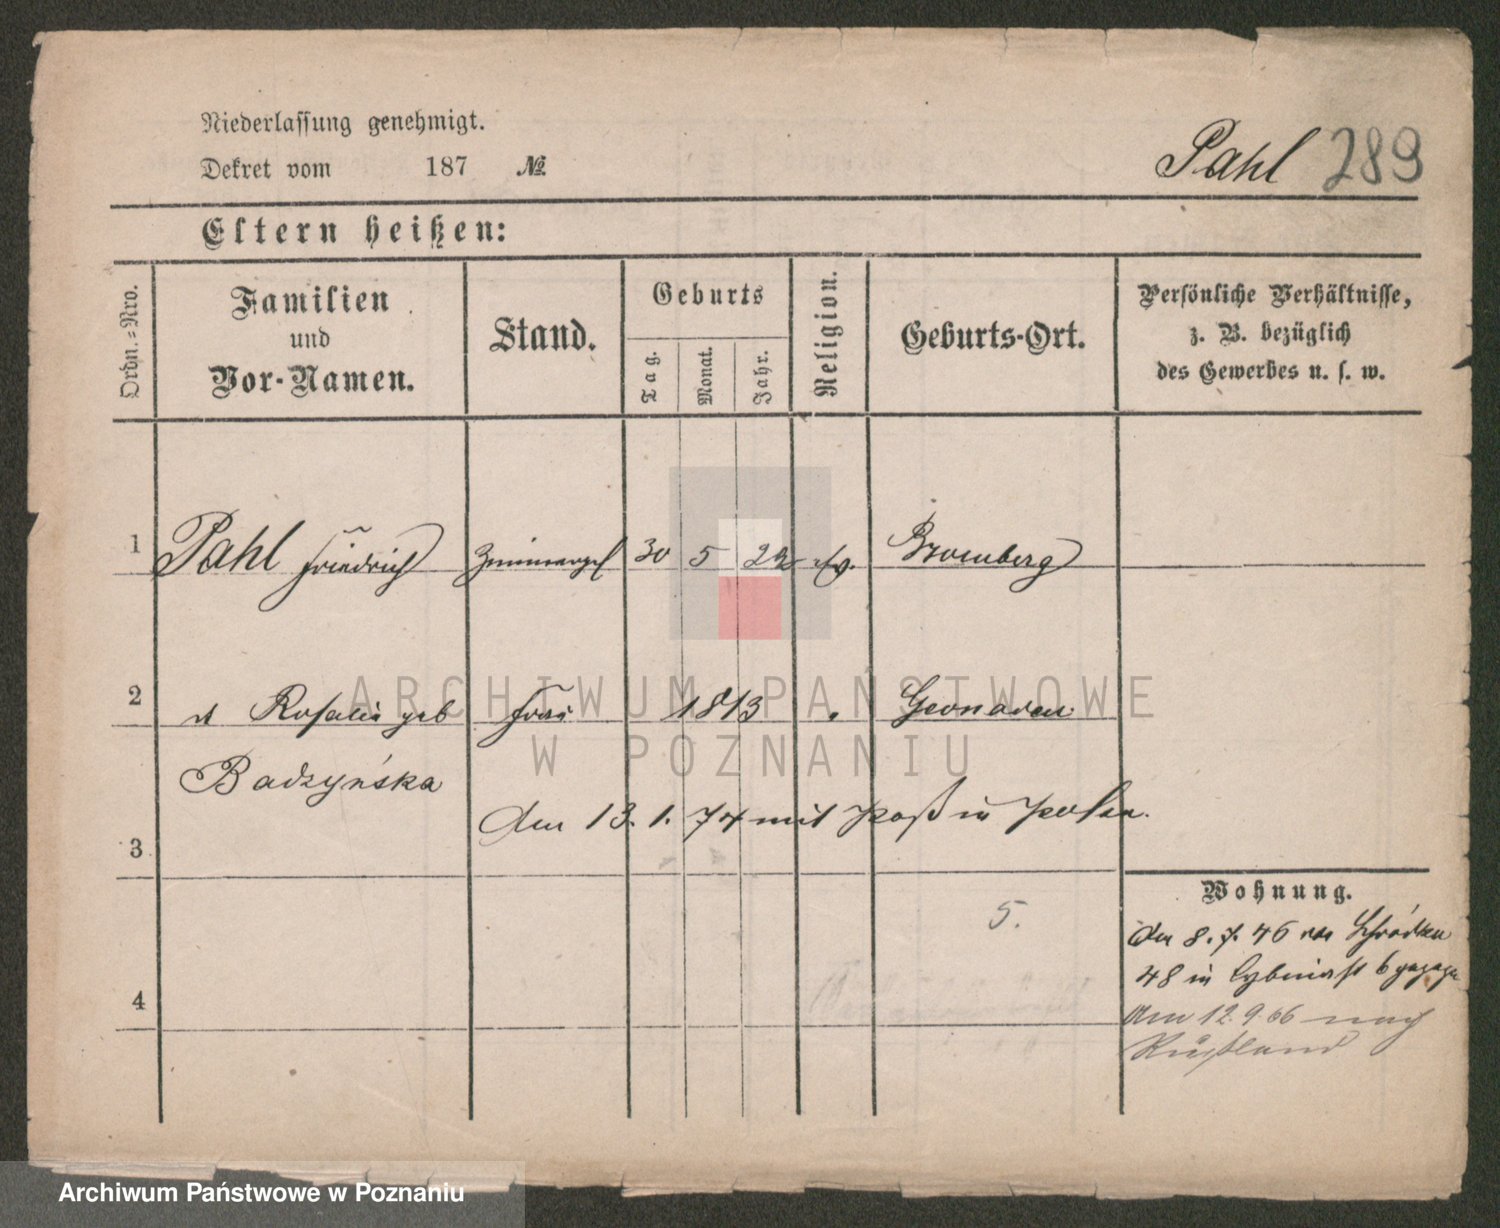 Niederlassung genehmigt.
Dekret vom 187 №
Pahl 289
Eltern heißen:
Ordn.-Nro.
Familien
und
Vor-Namen.
Stand.
Geburts
Tag.
Monat.
Jahr.
Religion.
Geburts-Ort.
Persönliche Verhältnisse,
z. B. bezüglich
des Gewerbes u. s. w.
1 Pahl Friedrich Zimmergesl 30 5 22 ev. Bromberg
2 Rosalie geb Frau 1813 Gronaden
Badzyńska
den 13. 1. 74 mit Paß in Polen.
3
Wohnung.
5.
den 8. 7. 46 von Schrodken
48 in
4
Am 12. 9. 66 nach
Rußland
ARCHIWUM PAŃSTWOWE
W POZNANIU
Archiwum Państwowe w Poznaniu